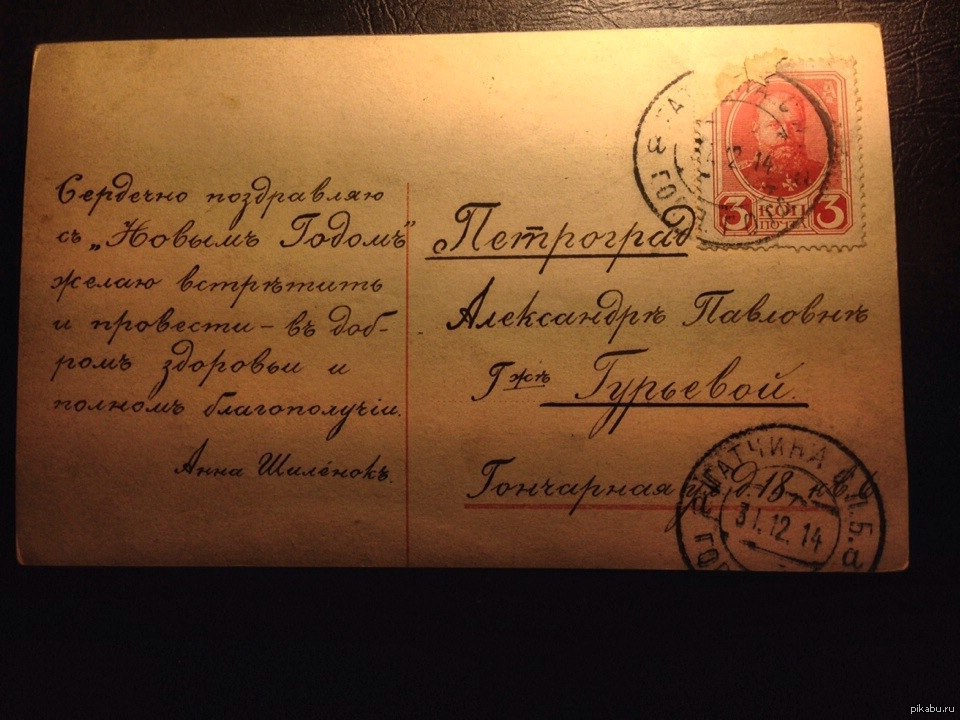 Сердечно поздравляю
съ „Новымъ Годомъ"
желаю встрѣтить
и провести – въ доб-
ромъ здоровьи и
полномъ благополучіи.
Анна Шилёнокъ.
Петроград
Александрѣ Павловнѣ
Гжѣ Гурьевой.
Гончарная д. 18
3 КОП 3
ПОЧТА
12 14
ГАТЧИНА
31.12.14
pikabu.ru